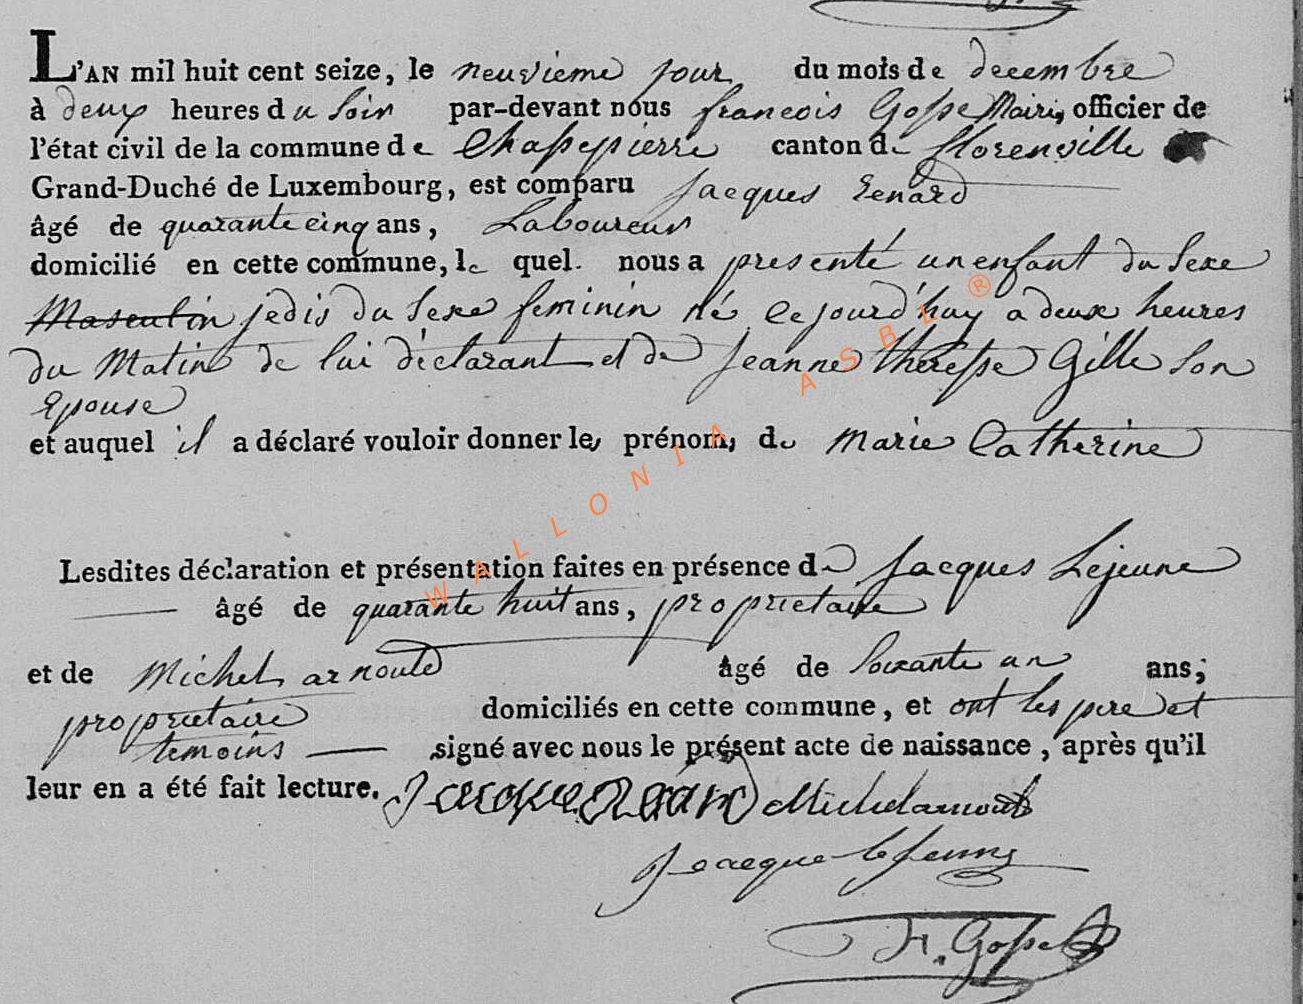 L'AN mil huit cent seize, le neuvieme jour du mois de decembre
à deux heures du soir par-devant nous francois Gosse Maire, officier de
l'état civil de la commune de Chassepierre canton de florenville
Grand-Duché de Luxembourg, est comparu Jacques Renard
âgé de quarante cinq ans, Laboureur
domicilié en cette commune, le quel nous a presenté un enfant du Sexe
Masculin je dis du Sexe feminin né ce jourd'huy a deux heures
du Matin de lui déclarant et de Jeanne theresse Gille Son
Epouse
et auquel il a déclaré vouloir donner les prénoms de Marie Catherine
Lesdites déclaration et présentation faites en présence de Jacques Lejeune
âgé de quarante huit ans, proprietaire
et de Michel arnould âgé de Soixante un ans;
proprietaire domiciliés en cette commune, et ont les pere et
temoins signé avec nous le présent acte de naissance, après qu'il
leur en a été fait lecture. Jacque Renard Michel arnould
Jacque le Jeune
F. Gosse
WALLONIA ASBL ®